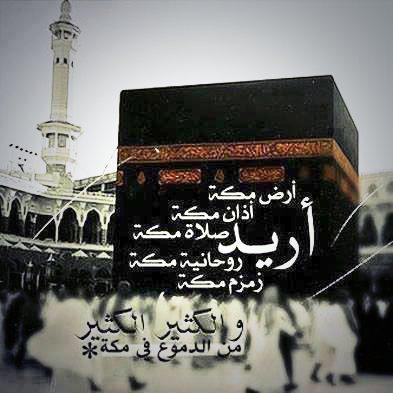 أرض مكة
أذان مكة
أريد صلاة مكة
روحانية مكة
زمزم مكة
والكثير الكثير
من الدموع في مكة*